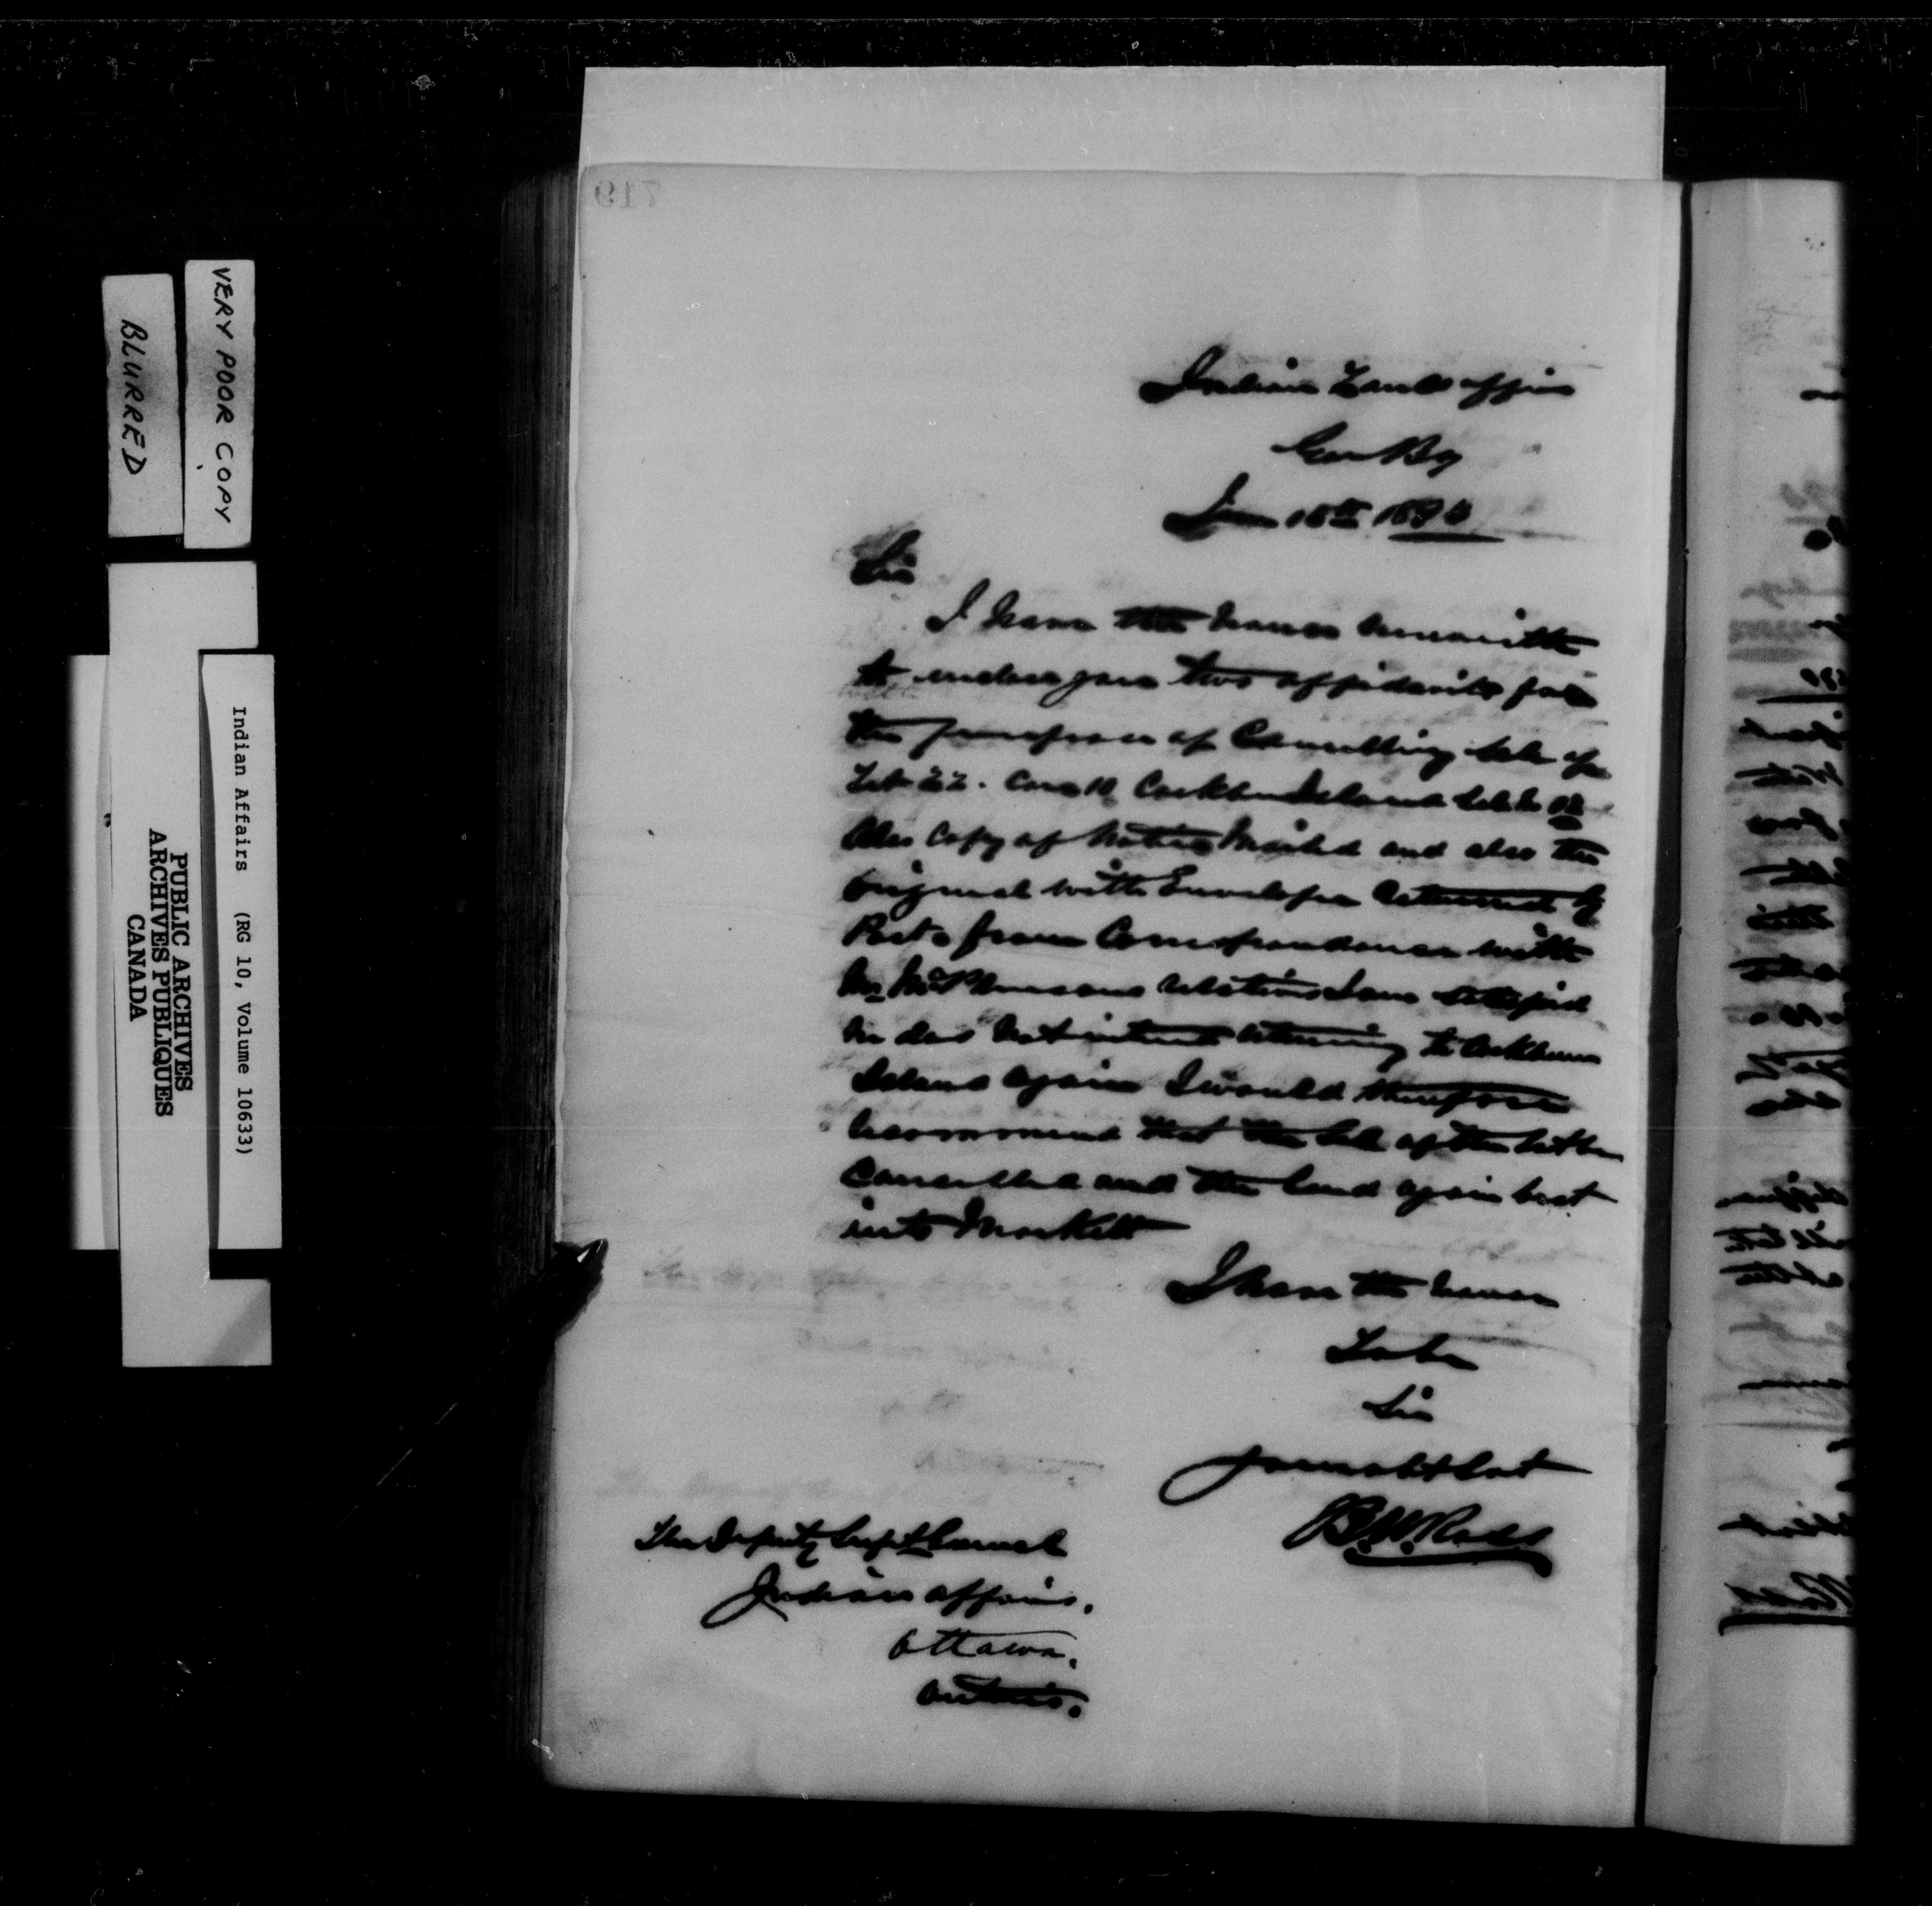 719
VERY POOR COPY
BLURRED
Indian Affairs (RG 10, Volume 10633)
PUBLIC ARCHIVES
ARCHIVES PUBLIQUES
CANADA
Indian Lands office
Gore Bay
15th 189
Sir
I have the honor herewith
to enclose you two affidavits for
the purpose of Cancelling Sale of
Lot 22. Con 10 Cockburn Island Sale No
Also Copy of Notice Mailed and also the
original with Envelope returned by
Post. from Correspondence with
Mr relatives I am satisfied
he does not intend returning to Cockburn
Island again I would therefore
recommend that the Sale of the lot be
Cancelled and the land again
into Markett
I have the honor
To be
Sir
your obt Svt
B. W. Ross
The Deputy Supt General
Indian affairs.
Ottawa.
Ontario.